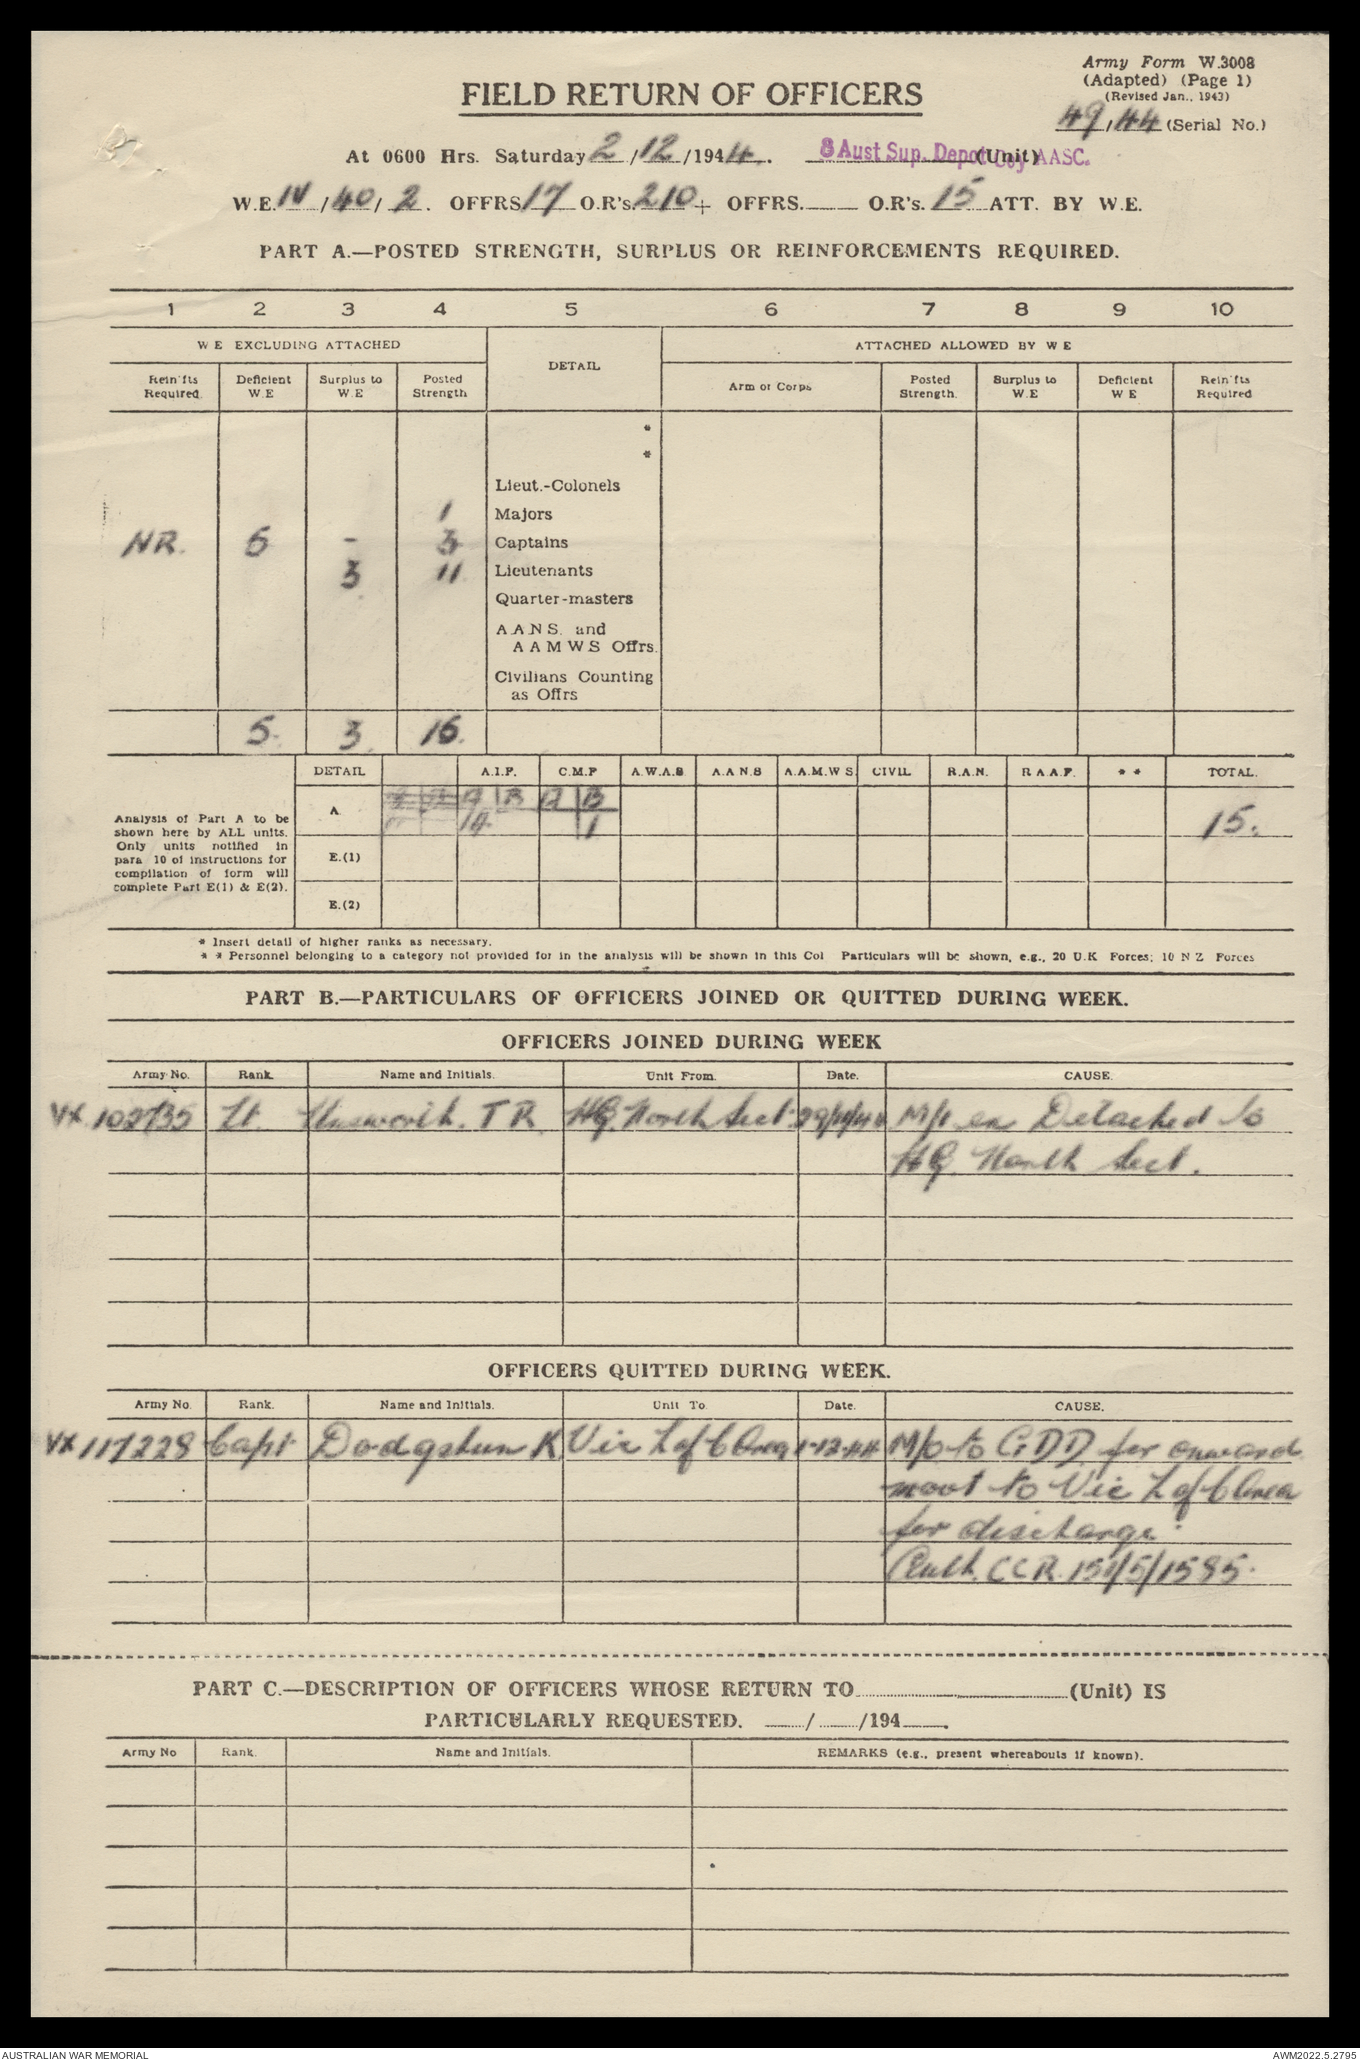 Army Form W.3008
(Adapted) (Page 1)
(Revised Jan., 1943)
FIELD RETURN OF OFFICERS
49/44 (Serial No.)
At 0600 Hrs. Saturday 2/12/1944. 8 Aust Sup. Depot Coy AASC. (Unit)
W.E. IV/40/2. OFFRS 17 O.R's. 210 + OFFRS. O.R's. 15 ATT. BY W.E.
PART A.—POSTED STRENGTH, SURPLUS OR REINFORCEMENTS REQUIRED.
1 2 3 4 5 6 7 8 9 10
W E EXCLUDING ATTACHED DETAIL ATTACHED ALLOWED BY W E
Rein'fts Required. Deficient W.E Surplus to W.E Posted Strength Arm or Corps Posted Strength. Surplus to W.E Deficient W E Rein'fts Required
*
*
Lieut.-Colonels
1 Majors
NR. 5 - 3 Captains
3 11 Lieutenants
Quarter-masters
A.A.N.S. and
A A M W S Offrs.
Civilians Counting
as Offrs
5. 3. 15.
DETAIL A.I.F. C.M.F A.W.A.S A.A N.S A.A.M.W S. CIVIL R.A.N. R A A.F. * * TOTAL.
Analysis of Part A to be
shown here by ALL units.
Only units notified in
para 10 of instructions for
compilation of form will
complete Part E(1) & E(2).
A A B A B
14 1 15.
E.(1)
E.(2)
* Insert detail of higher ranks as necessary.
* * Personnel belonging to a category not provided for in the analysis will be shown in this Col Particulars will be shown, e.g., 20 U.K Forces; 10 N Z Forces
PART B.—PARTICULARS OF OFFICERS JOINED OR QUITTED DURING WEEK.
OFFICERS JOINED DURING WEEK
Army No. Rank. Name and Initials. Unit From. Date. CAUSE.
VX 102735 Lt. Unsworth. T R. HQ. North Sect. 29/11/44 M/I ex Detached to
HQ. North Sect.
OFFICERS QUITTED DURING WEEK.
Army No. Rank. Name and Initials. Unit To. Date. CAUSE.
VX 117228 Capt Dodgshun K Vic L of C Area 1-12-44 M/O to GDD for onward
movt to Vic L of C Area
for discharge.
Auth. CCR. 151/5/1585.
PART C.—DESCRIPTION OF OFFICERS WHOSE RETURN TO (Unit) IS
PARTICULARLY REQUESTED. / /194 .
Army No Rank. Name and Initials. REMARKS (e.g., present whereabouts if known).
AUSTRALIAN WAR MEMORIAL AWM2022.5.2795